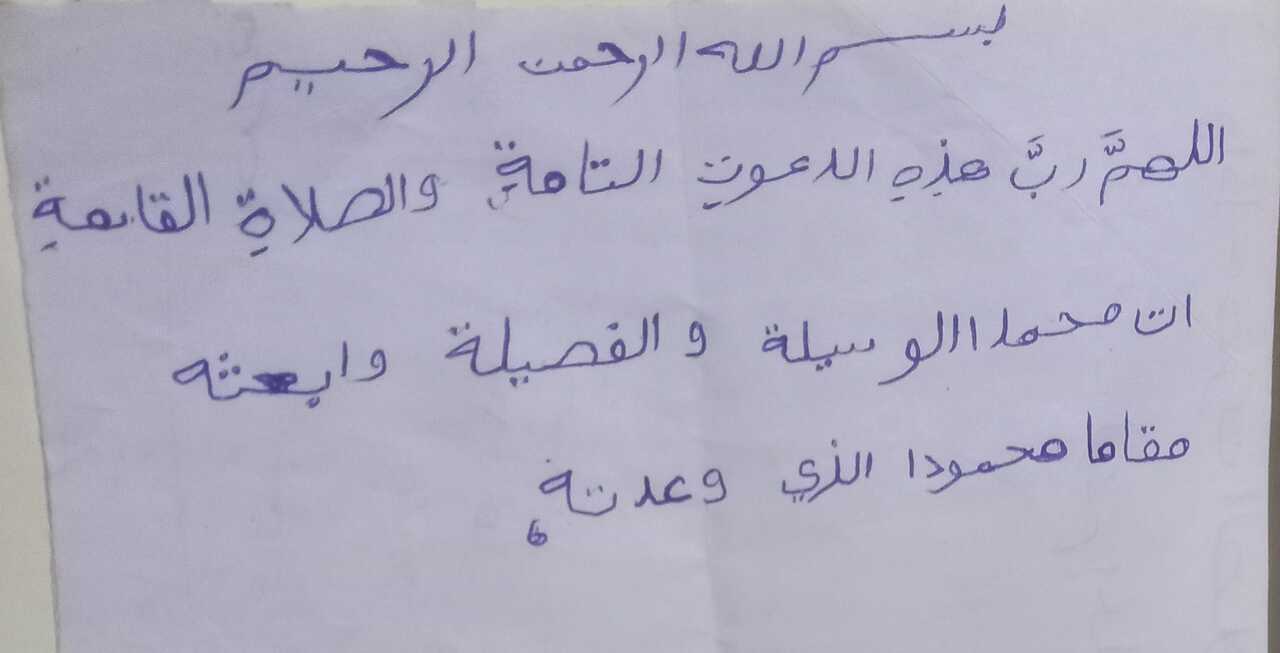 بسم الله الرحمن الرحيم
اللهمَّ ربَّ هذِهِ الدعوتِ التامةِ والصلاةِ القايمةِ
ات محمدا الوسيلة والفصيلة وابعثه
مقاما محمودا الذي وعدتة